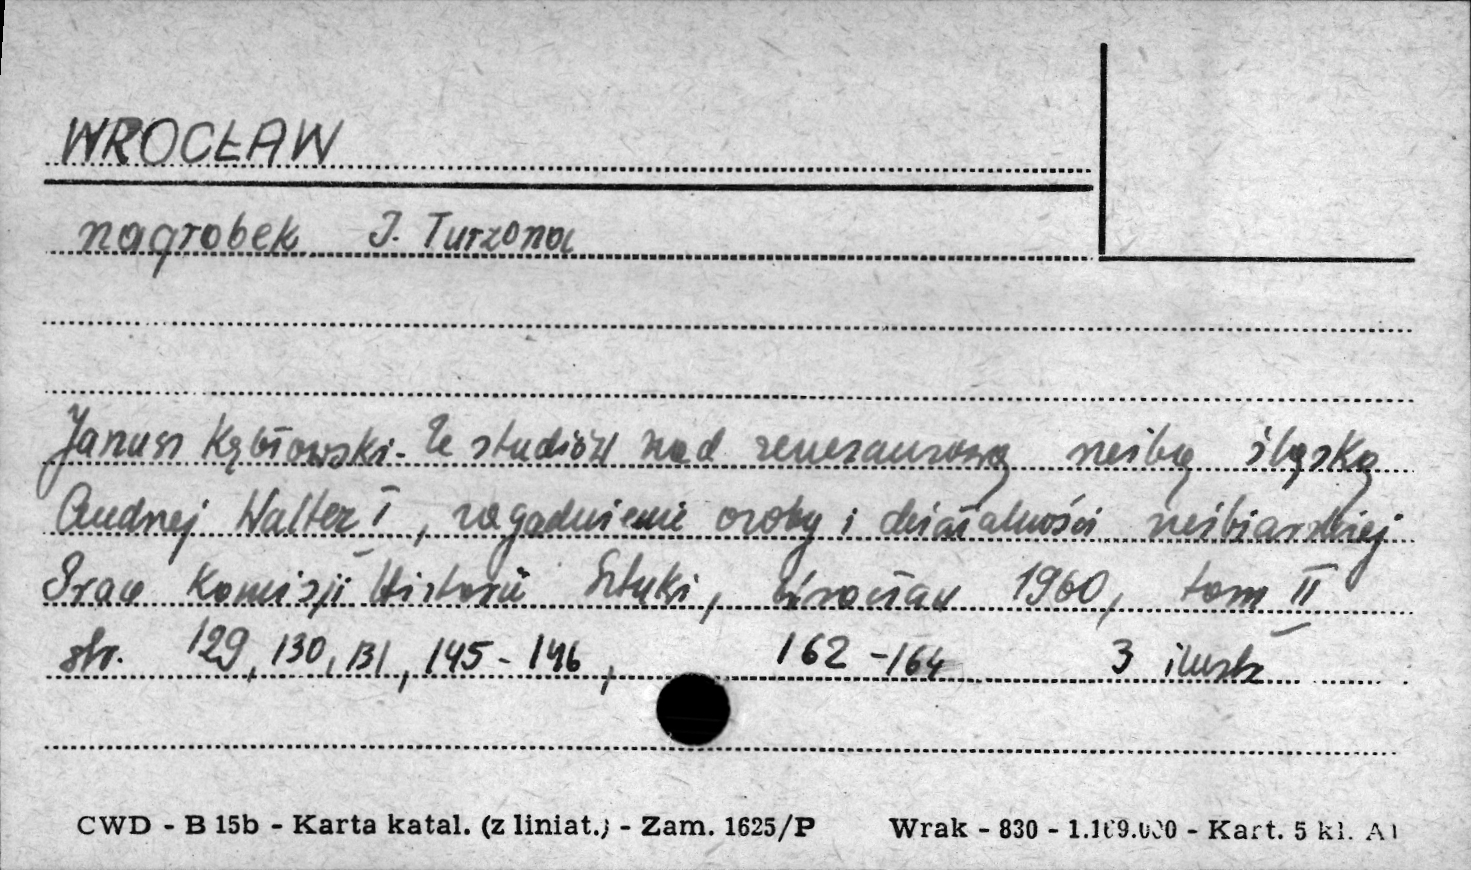 WROCŁAW
nagrobek J. Turzona
Janusz Kębłowski - Ze studiów nad renesansową rzeźbą śląską
Andrzej Walter I, zagadnienie osoby i działalności rzeźbiarskiej
Prace Komisji Historii Sztuki, Wrocław 1960, tom II
str. 129, 130, 131, 145-146, 162-164 3 ilustr
CWD - B 15b - Karta katal. (z liniat.) - Zam. 1625/P Wrak - 830 - 1.109.000 - Kart. 5 kl. A1